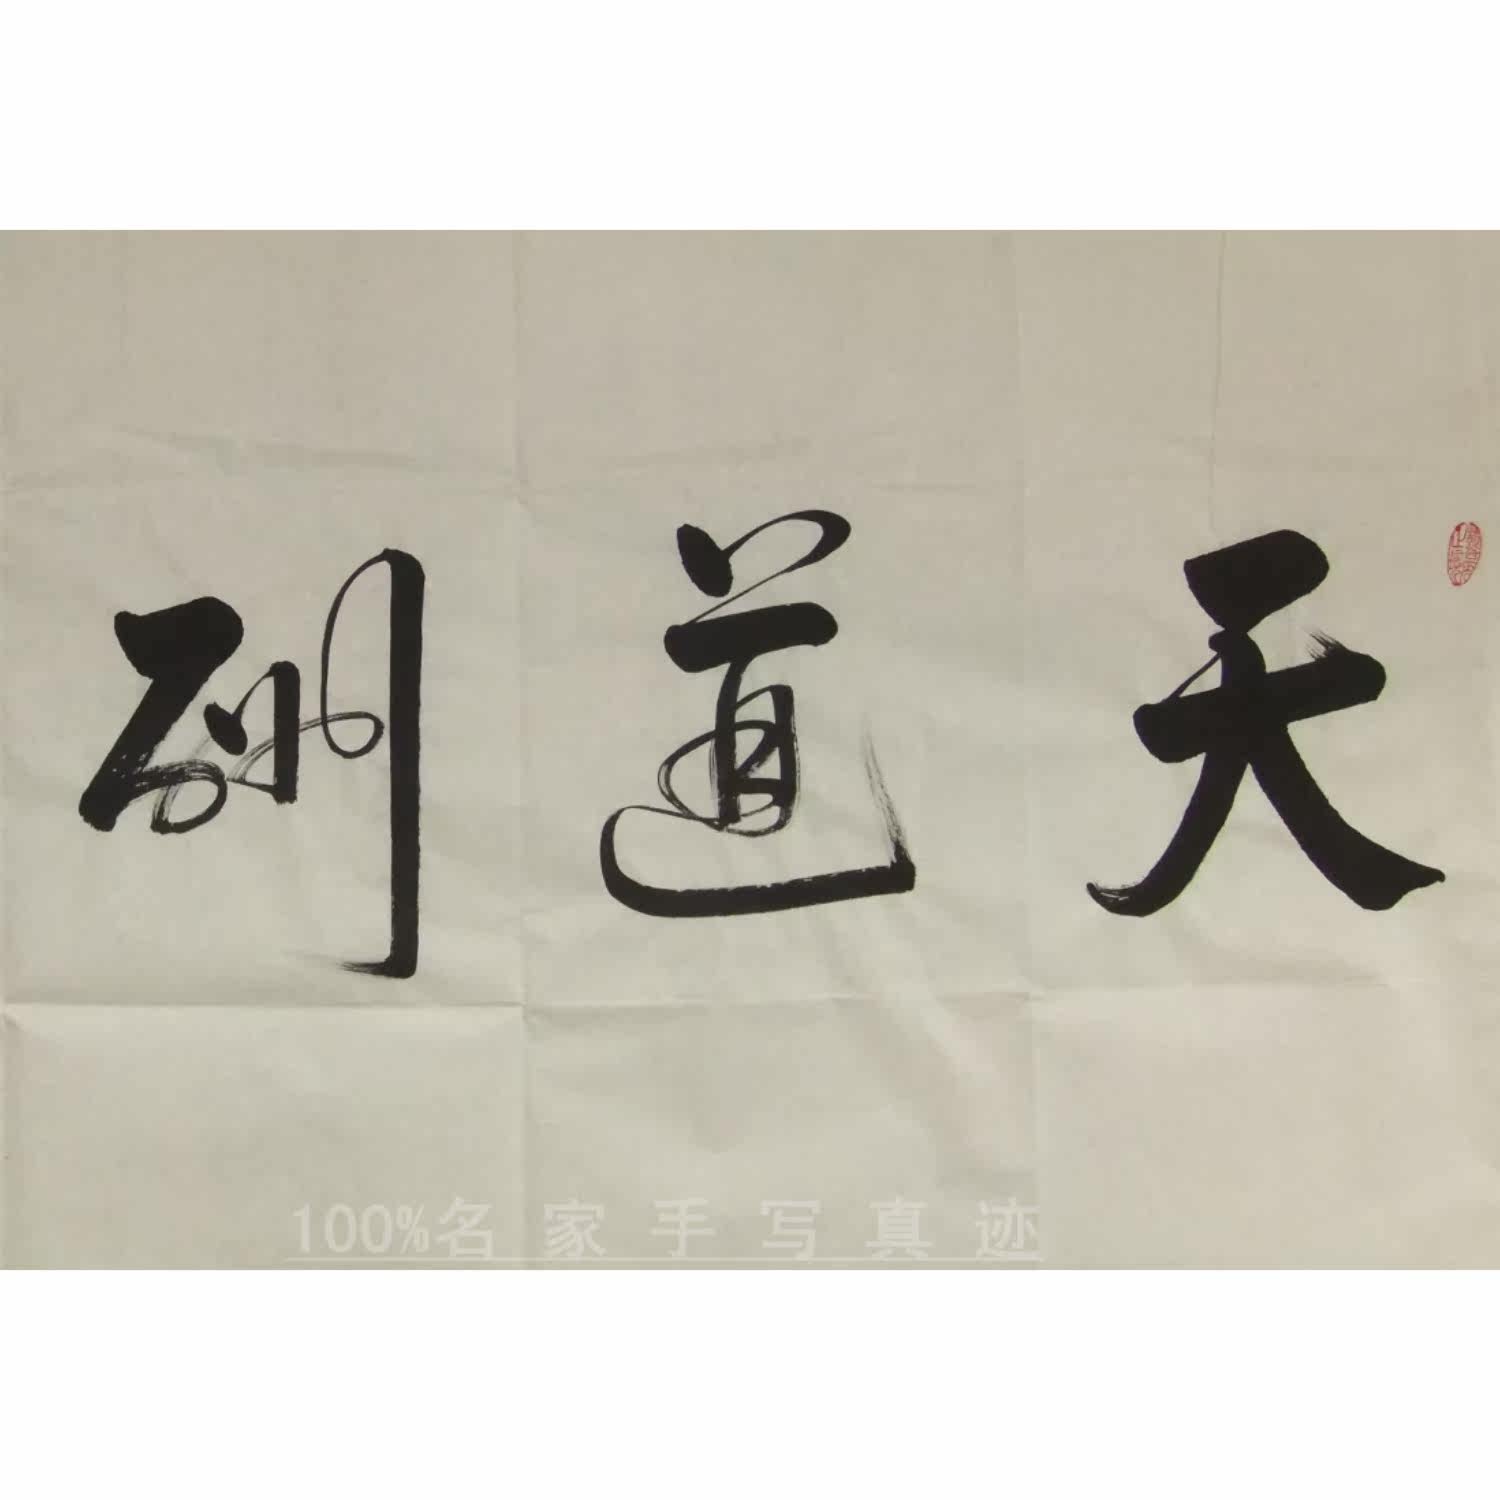 天道酬
100%名家手写真迹